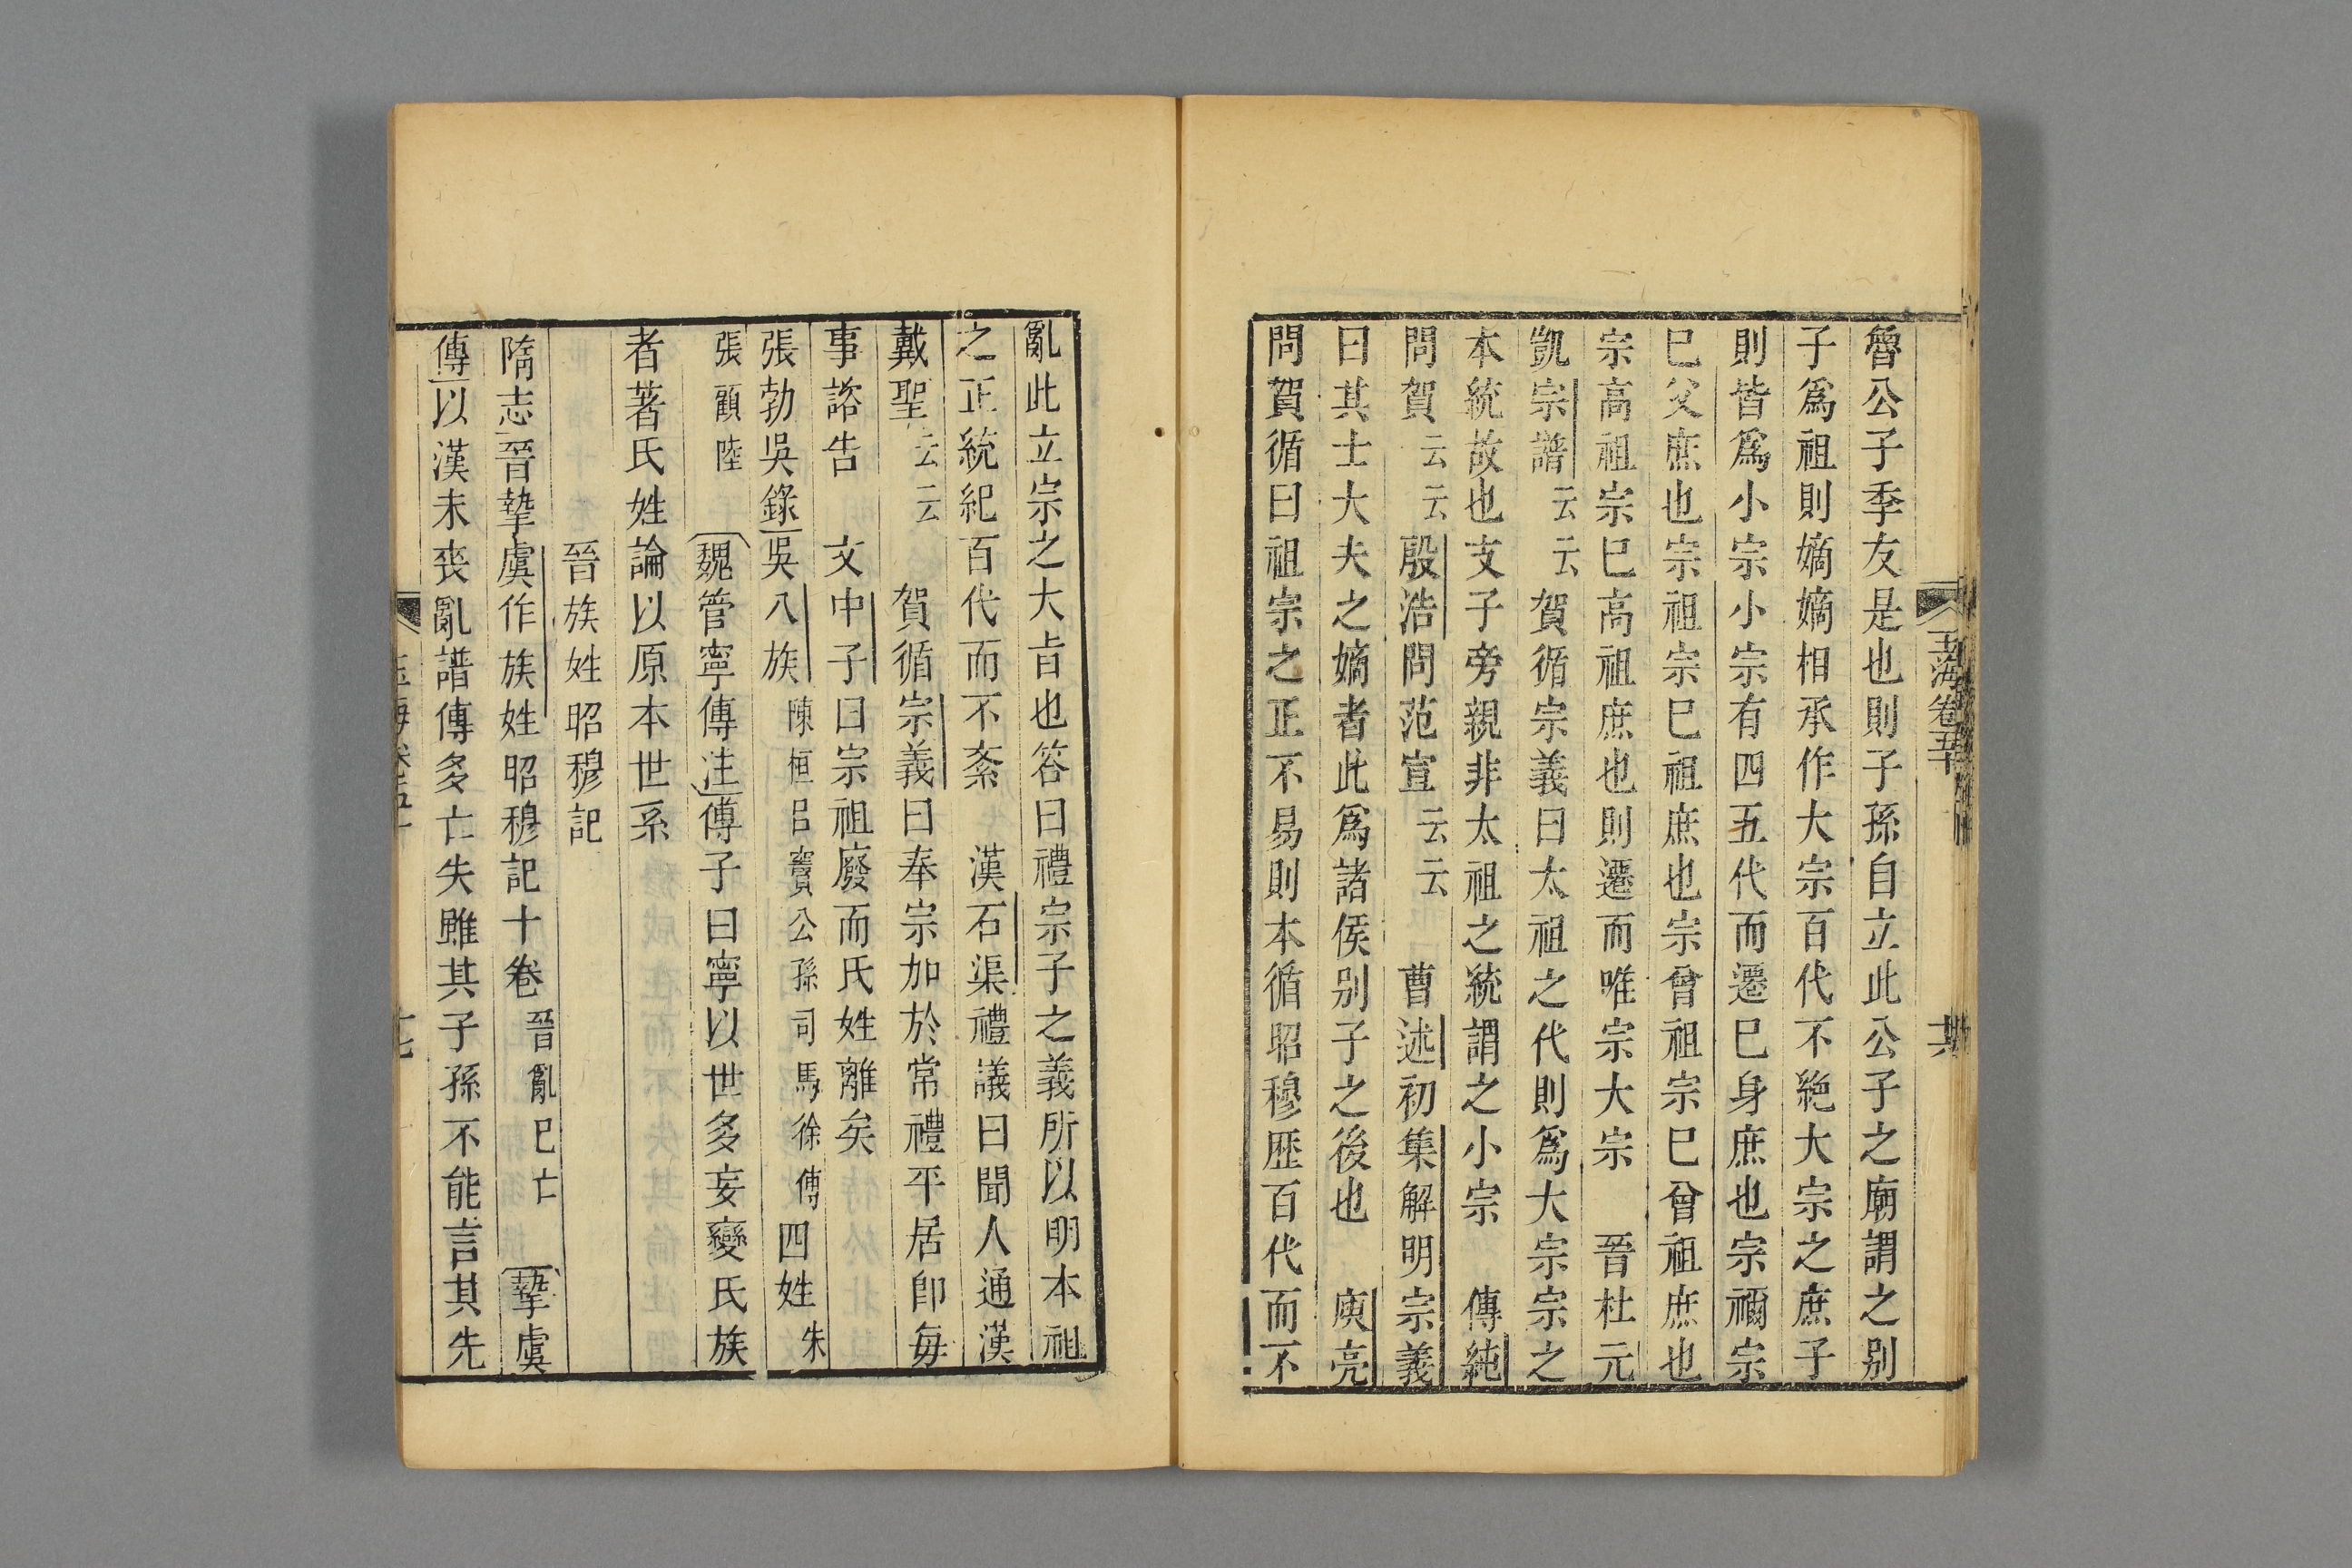 魯公子季友是也則子孫自立此公子之廟謂之别
子爲祖則嫡嫡相承作大宗百代不絶大宗之庶子
則皆爲小宗小宗有四五代而遷巳身庶也宗禰宗
巳父庶也宗祖宗巳祖庶也宗曾祖宗巳曾祖庶也
宗高祖宗巳高祖庶也則遷而唯宗大宗　晉杜元
凱宗譜云云　賀循宗義曰太祖之代則爲大宗宗之
本統故也支子旁親非太祖之統謂之小宗　傅純
問賀云云　殷浩問范宣云云　曹述初集解明宗義
曰其士大夫之嫡者此爲諸侯别子之後也　庾亮
問賀循曰祖宗之正不易則本循昭穆歷百代而不
亂此立宗之大㫖也答曰禮宗子之義所以明本祖
之正統紀百代而不紊　漢石渠禮議曰聞人通漢
戴聖云云　賀循宗義曰奉宗加於常禮平居卽每
事諮告　文中子曰宗祖廢而氏姓離矣
張勃吳錄吳八族陳桓呂竇公孫司馬徐傅四姓朱
張顧陸　魏管寧傳注傅子曰寧以世多妄變氏族
者著氏姓論以原本世系
晉族姓昭穆記
隋志晉摯虞作族姓昭穆記十卷晉亂巳亡　摯虞
傳以漢末喪亂譜傳多亡失雖其子孫不能言其先
玉海卷五十